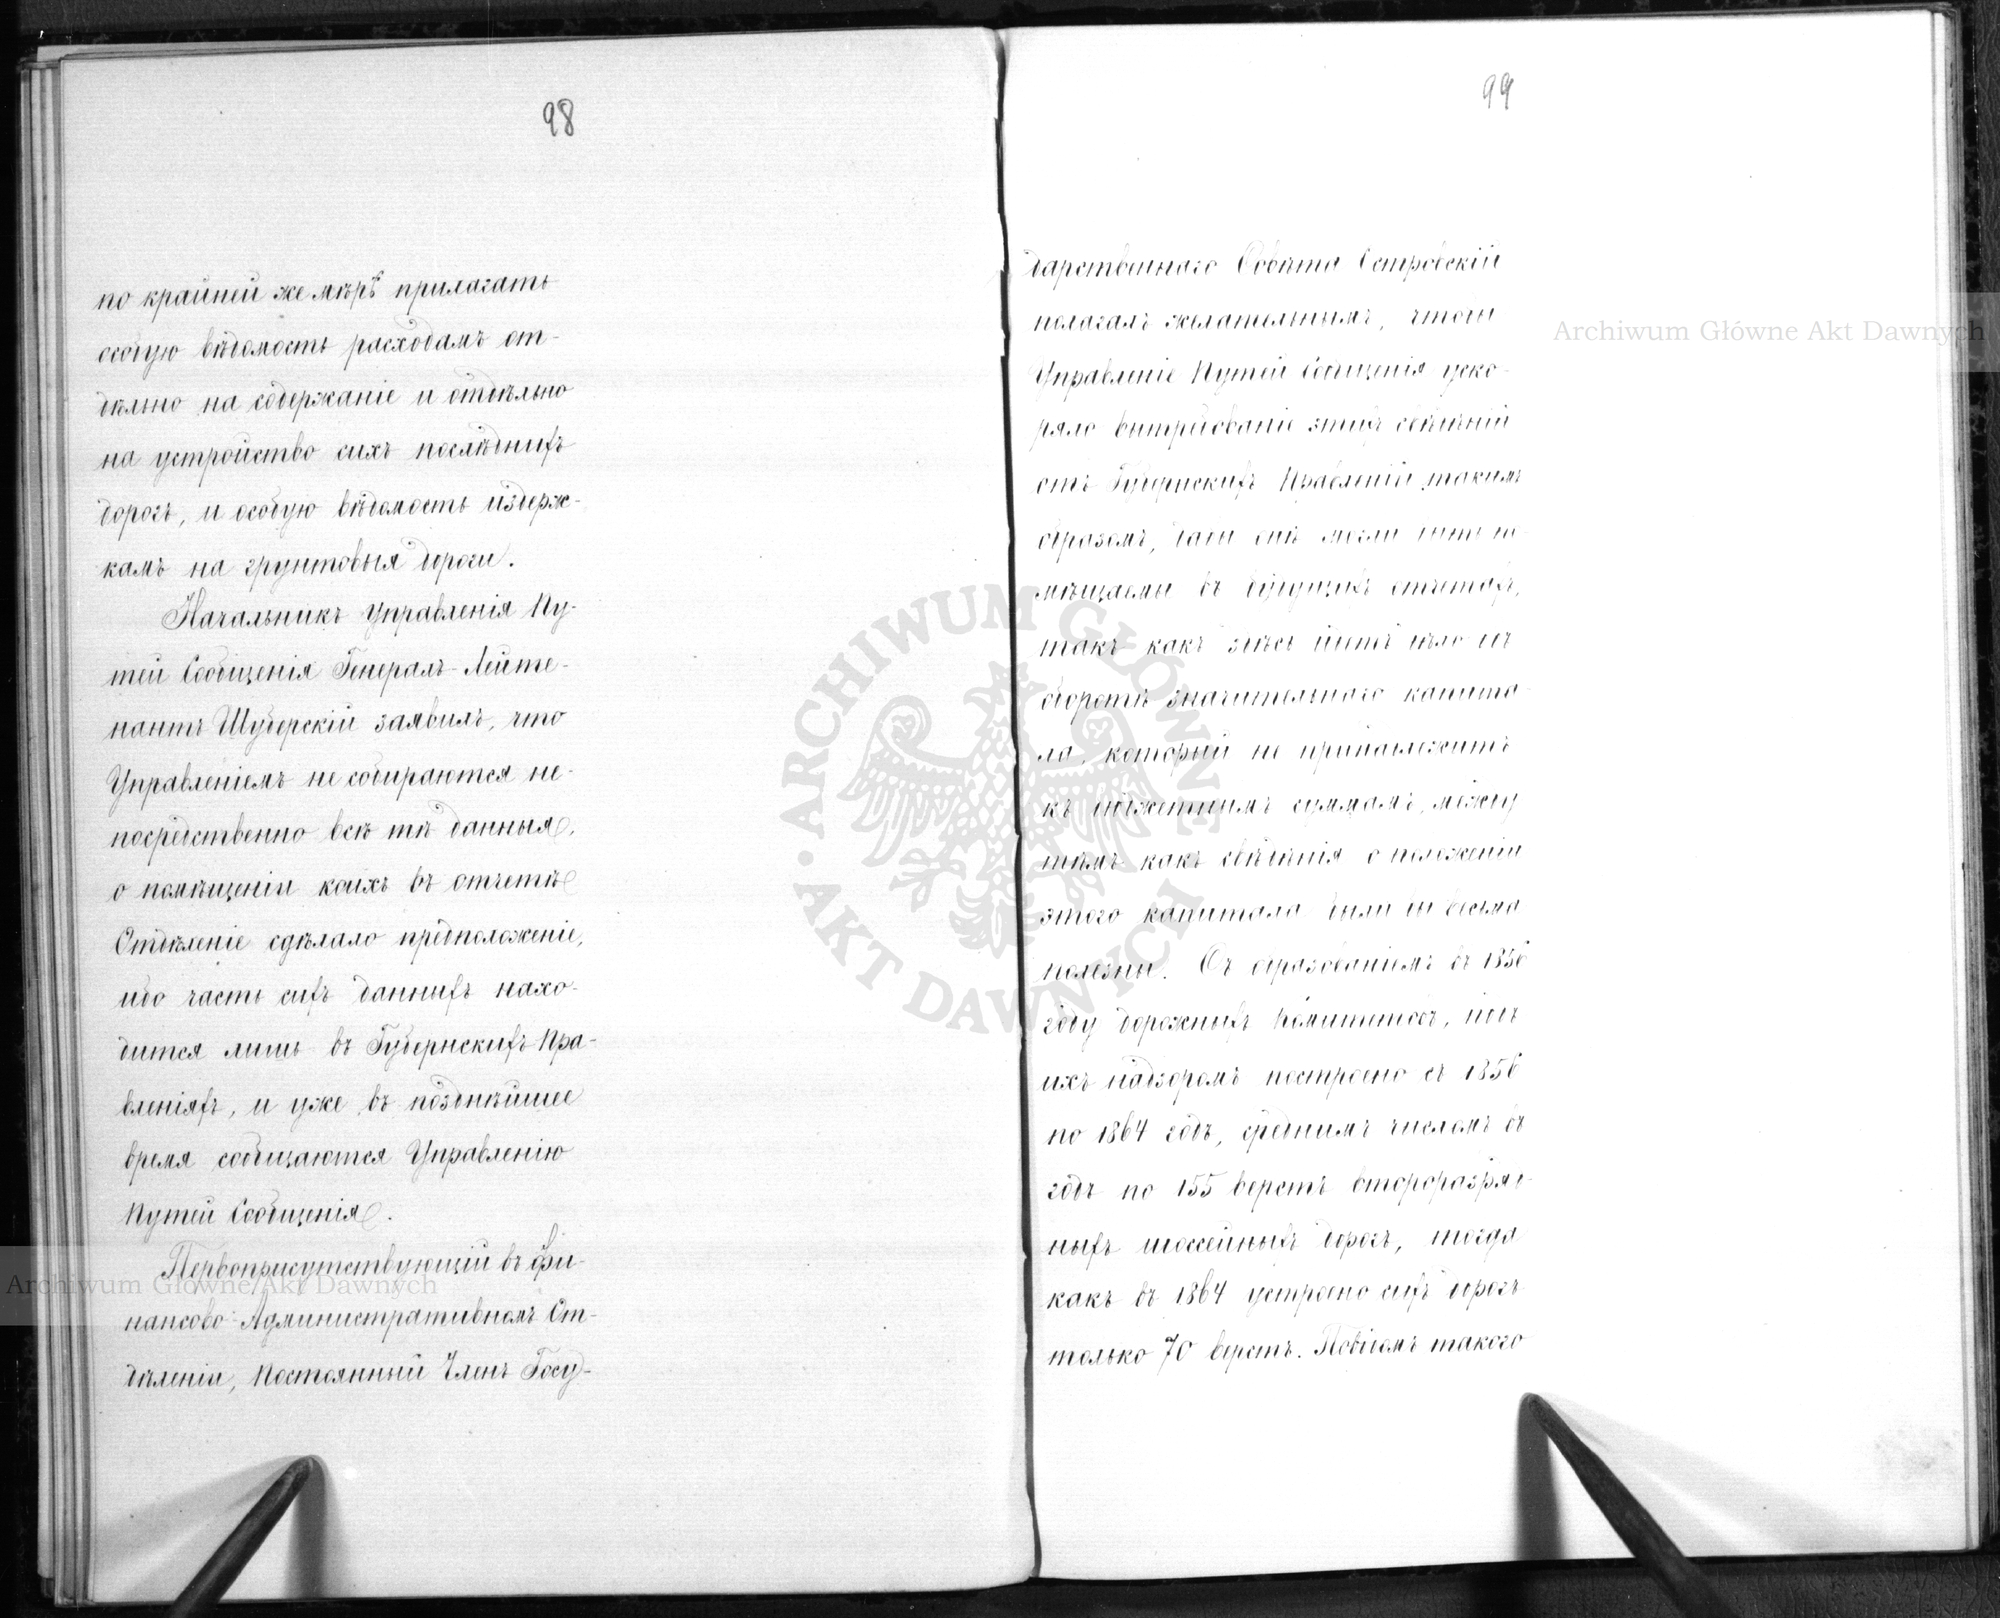 98
по крайней же мѣрѣ прилагать
особую вѣдомость расходамъ от-
дѣльно на содержаніе и отдѣльно
на устройство сихъ послѣднихъ
дорогъ, и особую вѣдомость издерж-
камъ на грунтовыя дороги.
Начальникъ Управленія Пу-
тей Сообщенія Генералъ-Лейте-
нантъ Шуберскій заявилъ, что
Управленіемъ не собираются не-
посредственно всѣ тѣ данныя,
о помѣщеніи коихъ въ отчетѣ
Отдѣленіе сдѣлало предположеніе,
ибо часть сихъ данныхъ нахо-
дится лишь въ Губернскихъ Пра-
вленіяхъ, и уже въ позднѣйшее
время сообщаются Управленію
Путей Сообщенія.
Первоприсутствующій въ Фи-
нансово-Административномъ От-
дѣленіи, Постоянный Членъ Госу-
99
дарственнаго Совѣта Островскій
полагалъ желательнымъ, чтобы
Управленіе Путей Сообщенія уско-
ряло вытребованіе этихъ свѣдѣній
отъ Губернскихъ Правленій такимъ
образомъ, дабы онѣ могли быть по-
мѣщаемы въ будущихъ отчетахъ,
такъ какъ здѣсь идетъ дѣло объ
оборотѣ значительнаго капита-
ла, который не принадлежитъ
къ бюджетнымъ суммамъ, между
тѣмъ какъ свѣдѣнія о положеніи
этого капитала были бы весьма
полезны. Съ образованіемъ въ 1856
году дорожныхъ Комитетовъ, подъ
ихъ надзоромъ построено съ 1856
по 1864 годъ, среднимъ числомъ въ
годъ по 155 верстъ второразряд-
ныхъ шоссейныхъ дорогъ, тогда
какъ въ 1864 устроено сихъ дорогъ
только 70 верстъ. Поводомъ такого
Archiwum Główne Akt Dawnych
ARCHIWUM GŁÓWNE AKT DAWNYCH
Archiwum Główne Akt Dawnych